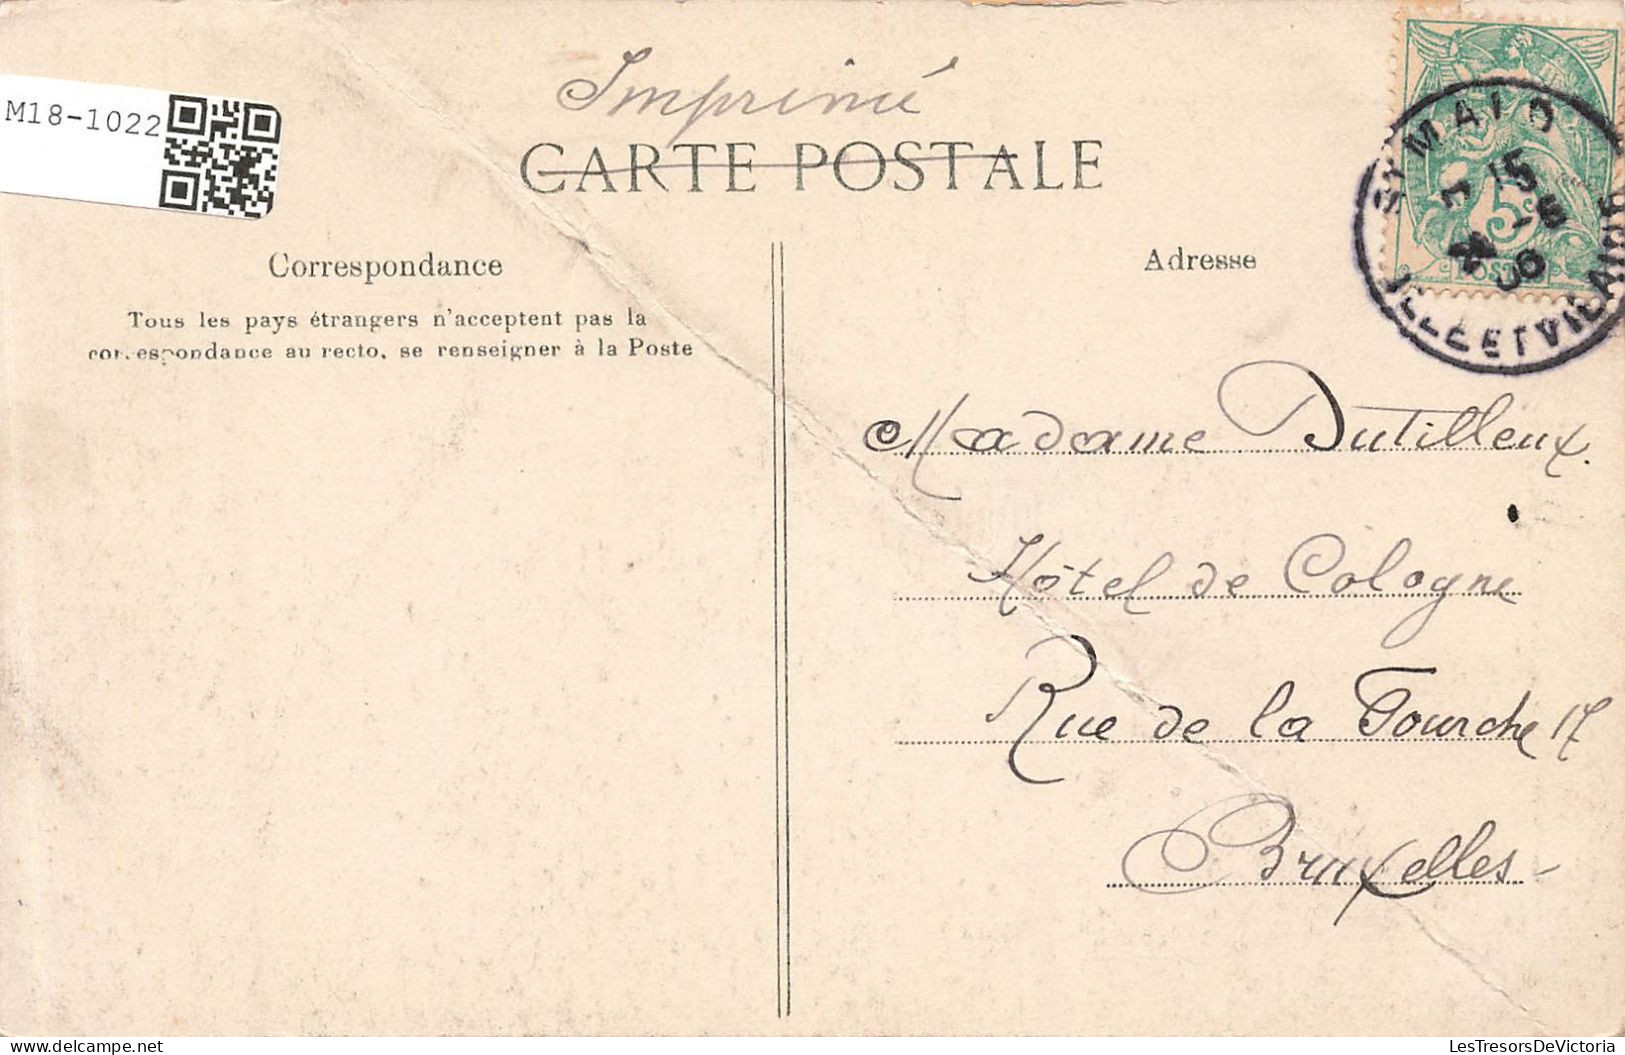 M18-1022
Imprimé
CARTE POSTALE
Correspondance
Adresse
Tous les pays étrangers n'acceptent pas la
correspondance au recto, se renseigner à la Poste
ST MALO
ILLE-ET-VILAINE
5c
POSTES
Madame Dutilleux.
Hôtel de Cologne
Rue de la Fourche 17
Bruxelles -
LesTresorsDeVictoria